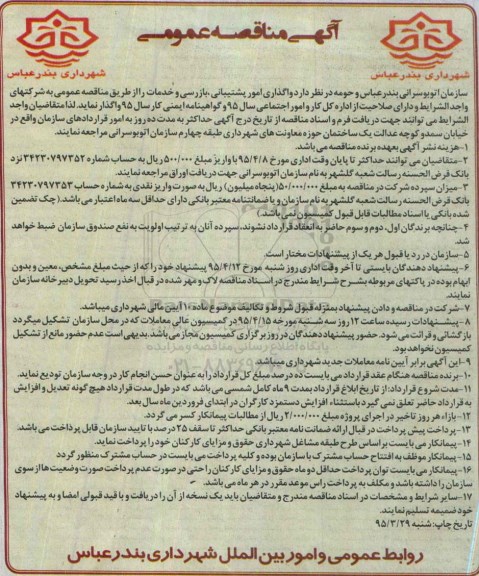 آگهی مناقصه عمومی
شهرداری بندرعباس
شهرداری بندرعباس
سازمان اتوبوسرانی بندرعباس و حومه در نظر دارد واگذاری امور پشتیبانی، بازرسی و خدمات را از طریق مناقصه عمومی به شرکتهای
واجد الشرایط و دارای صلاحیت از اداره کل کار و امور اجتماعی سال ۹۵ و گواهینامه ایمنی کار سال ۹۵ واگذار نماید. لذا متقاضیان واجد
الشرایط می توانند جهت دریافت فرم و اسناد مناقصه از تاریخ درج آگهی حداکثر به مدت ده روز به امور قراردادهای سازمان واقع در
خیابان سدو کوچه عدالت یک ساختمان حوزه معاونت های شهرداری طبقه چهارم سازمان اتوبوسرانی مراجعه نمایند.
۱-هزینه نشر آگهی بعهده برنده مناقصه می باشد.
۲-متقاضیان می توانند حداکثر تا پایان وقت اداری مورخ ۹۵/۴/۸ با واریز مبلغ ۵۰۰/۰۰۰ ریال به حساب شماره ۳۴۲۳۰۷۹۷۳۵۲ نزد
بانک قرض الحسنه رسالت شعبه گلشهر به نام سازمان و تامین اجتماعی جهت دریافت اوراق مراجعه نمایند.
۳-میزان سپرده شرکت در مناقصه به مبلغ ۵۰/۰۰۰/۰۰۰ (پنجاه میلیون) ریال به صورت واریز نقدی به شماره حساب ۳۴۲۳۰۷۹۷۳۵۳
بانک قرض الحسنه رسالت شعبه گلشهر به نام سازمان و یا ضمانتنامه معتبر بانکی دارای حداقل سه ماه اعتبار می باشد. (چک تضمین
شده بانکی یا اسناد مطالبات قابل قبول کمیسیون نمی باشد.)
۴-چنانچه برندگان اول، دوم و سوم حاضر به انعقاد قرارداد نشوند، سپرده آنان به ترتیب اولویت به نفع صندوق سازمان ضبط خواهد
شد.
۵-سازمان در رد یا قبول هر یک از پیشنهادات مختار است.
۶-پیشنهاد دهندگان بایستی تا آخر وقت اداری روز شنبه مورخ ۹۵/۴/۱۲ پیشنهاد خود را که از حیث مبلغ مشخص، معین و بدون
ابهام بوده در پاکتهای مربوطه بشرح شرایط مندرج در اسناد مناقصه لاک و مهر شده در قبال اخذ رسید تحویل دبیرخانه سازمان
نمایند.
۷-شرکت در مناقصه و دادن پیشنهاد بمنزله قبول شروط و تکالیف موضوع ماده ۱۰ آیین مالی شهرداری میباشد.
۸-پیشنهادات رسیده ساعت ۱۲ روز سه شنبه مورخه ۹۵/۴/۱۵ در کمیسیون عالی معاملات که در محل سازمان تشکیل میگردد
بازگشائی و قرائت می شود. حضور پیشنهاد دهندگان در روز برگزاری کمیسیون مجاز می باشد. بدیهی است عدم حضور مانع از تشکیل
کمیسیون نخواهد بود.
۹-این آگهی برابر آیین نامه معاملات جدید شهرداری میباشد
۱۰-برنده مناقصه هنگام عقد قرارداد می بایست ده درصد مبلغ کل قرارداد را به عنوان حسن انجام کار در وجه سازمان تودیع نماید.
۱۱-مدت شروع قرارداد: از تاریخ ابلاغ قرارداد بمدت ۹ ماه کامل شمسی می باشد که در طول مدت قرارداد هیچ گونه تعدیل و افزایش
به قرارداد حاضر تعلق نمی گیرد باستثناء افزایش دستمزد کارگران در ابتدای فروردین ماه سال بعد.
۱۲- بازاء هر روز تاخیر در اجرای پروژه مبلغ ۲/۰۰۰/۰۰۰ ریال از مطالبات پیمانکار کسر می گردد.
۱۳-پرداخت پیش پرداخت در قبال ارائه ضمانت نامه معتبر بانکی حداکثر تا سقف ۲۵ درصد با تایید سازمان قابل پرداخت می باشد.
۱۴-پیمانکار می بایست بر اساس طرح طبقه مشاغل شهرداری حقوق و مزایای کارکنان خود را پرداخت نماید.
۱۵-پیمانکار موظف به افتتاح حساب مشترک با سازمان بوده و کلیه پرداخت می بایست در حساب مشترک منظور گردد
۱۶-پیمانکار می بایست توان پرداخت حداقل دو ماه حقوق و مزایای کارکنان را حتی در صورت عدم پرداخت صورت وضعیت ها از سوی
سازمان را داشته باشد و مکلف به پرداخت راس موعد مقرر در هر ماه می باشد.
۱۷-سایر شرایط و مشخصات در اسناد مناقصه مندرج و متقاضیان باید یک نسخه از آن را دریافت و با قید قبولی امضا و به پیشنهاد
خود ضمیمه تسلیم نمایند.
تاریخ چاپ: شنبه ۹۵/۳/۲۹
روابط عمومی و امور بین الملل شهرداری بندرعباس